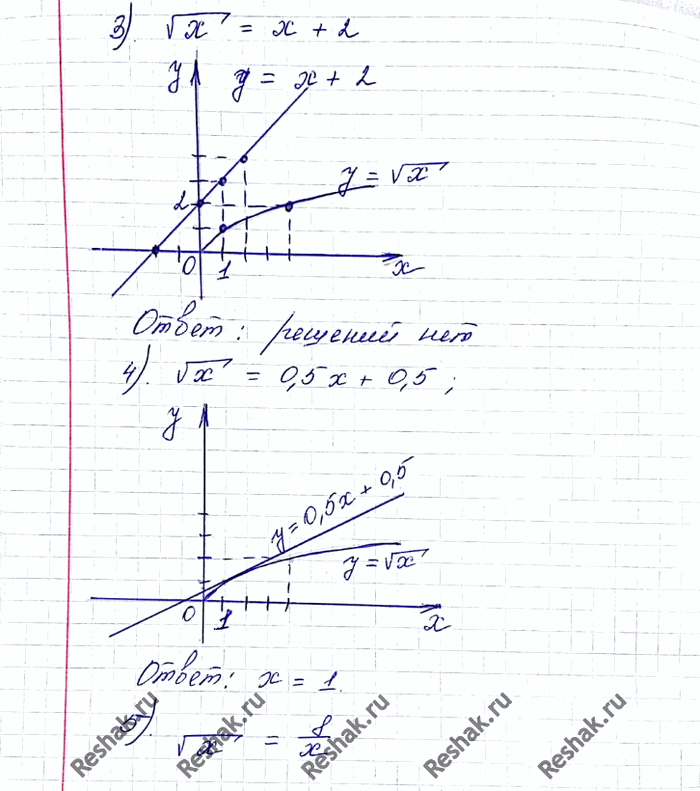 3). √x = x + 2
y y = x + 2
y = √x
2
0 1 x
Ответ: решений нет
4). √x = 0,5x + 0,5 ;
y
y = 0,5x + 0,5
y = √x
0 1 x
Ответ: x = 1.
5).
√x = 8/x
Reshak.ru Reshak.ru Reshak.ru Reshak.ru Reshak.ru